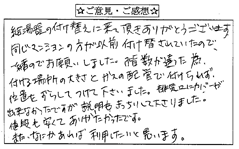 ☆ご意見・ご感想☆
給湯器の付け替えに来て頂きありがとうございます
同じマンションの方が以前付け替されていたので、
一緒のでお願いしました。階数が違った為、
付ける場所の大きさとガスの配管で付けられず、
位置をずらして付けて下さいました。
出来なかったですが説明もきっちりして下さいました。
値段も安くてありがたかったです。
またなにかあれば利用したいと思います。